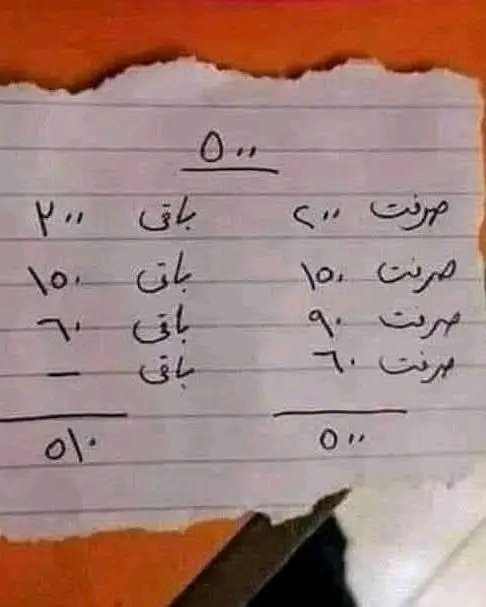 ٥٠٠
صرفت ٢٠٠ باقى ٣٠٠
صرفت ١٥٠ باقى ١٥٠
صرفت ٩٠ باقى ٦٠
صرفت ٦٠ باقى —
٥٠٠ ٥١٠